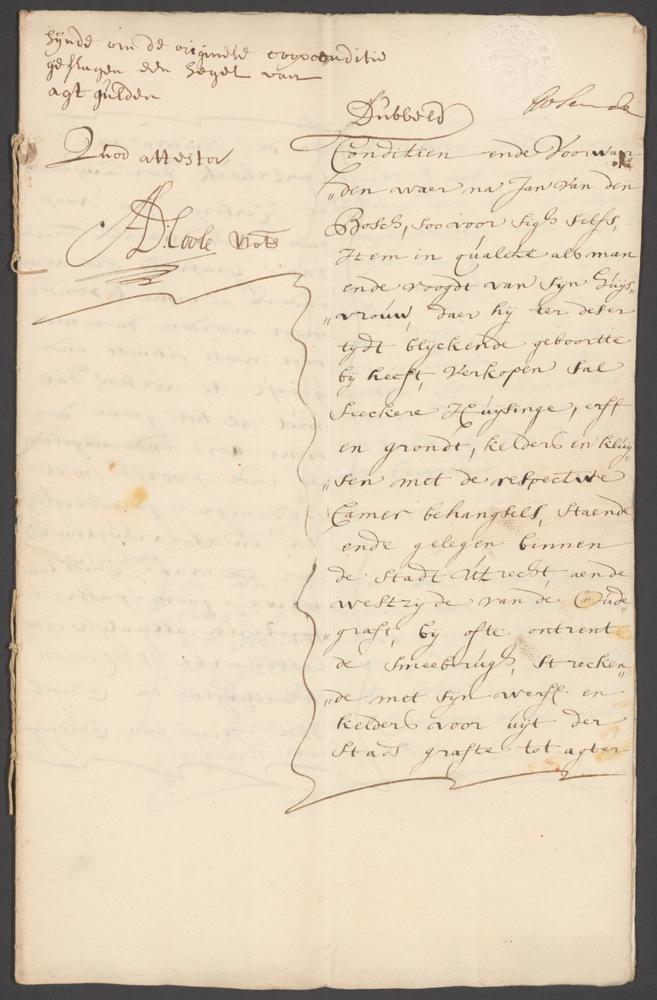 sijnde om de origineele coopconditie
geslagen een segel van
agt gulden
Quod attestor
D. Coole Nots
Dubbeld
Conditien ende Voorwaer
„den waer na Jan Van den
Bosch, soo voor sigh selfs,
Item in qualité als man
ende voogdt van syn Huys„
„vrouw, daer hy ter deser
tydt blyckende geboortte
by heeft, Verkopen sal
seeckere Huysinge, erff
en grondt, kelders en kluy„
„sen met de respective
Camer behangsels, staende
ende gelegen binnen
de Stadt Utrecht, aen de
westzyde van de Oude„
„graft, by ofte ontrent
de Smeebrugh, strecken„
„de met syn werff en
kelders voor uyt der
Stads grafte tot agter